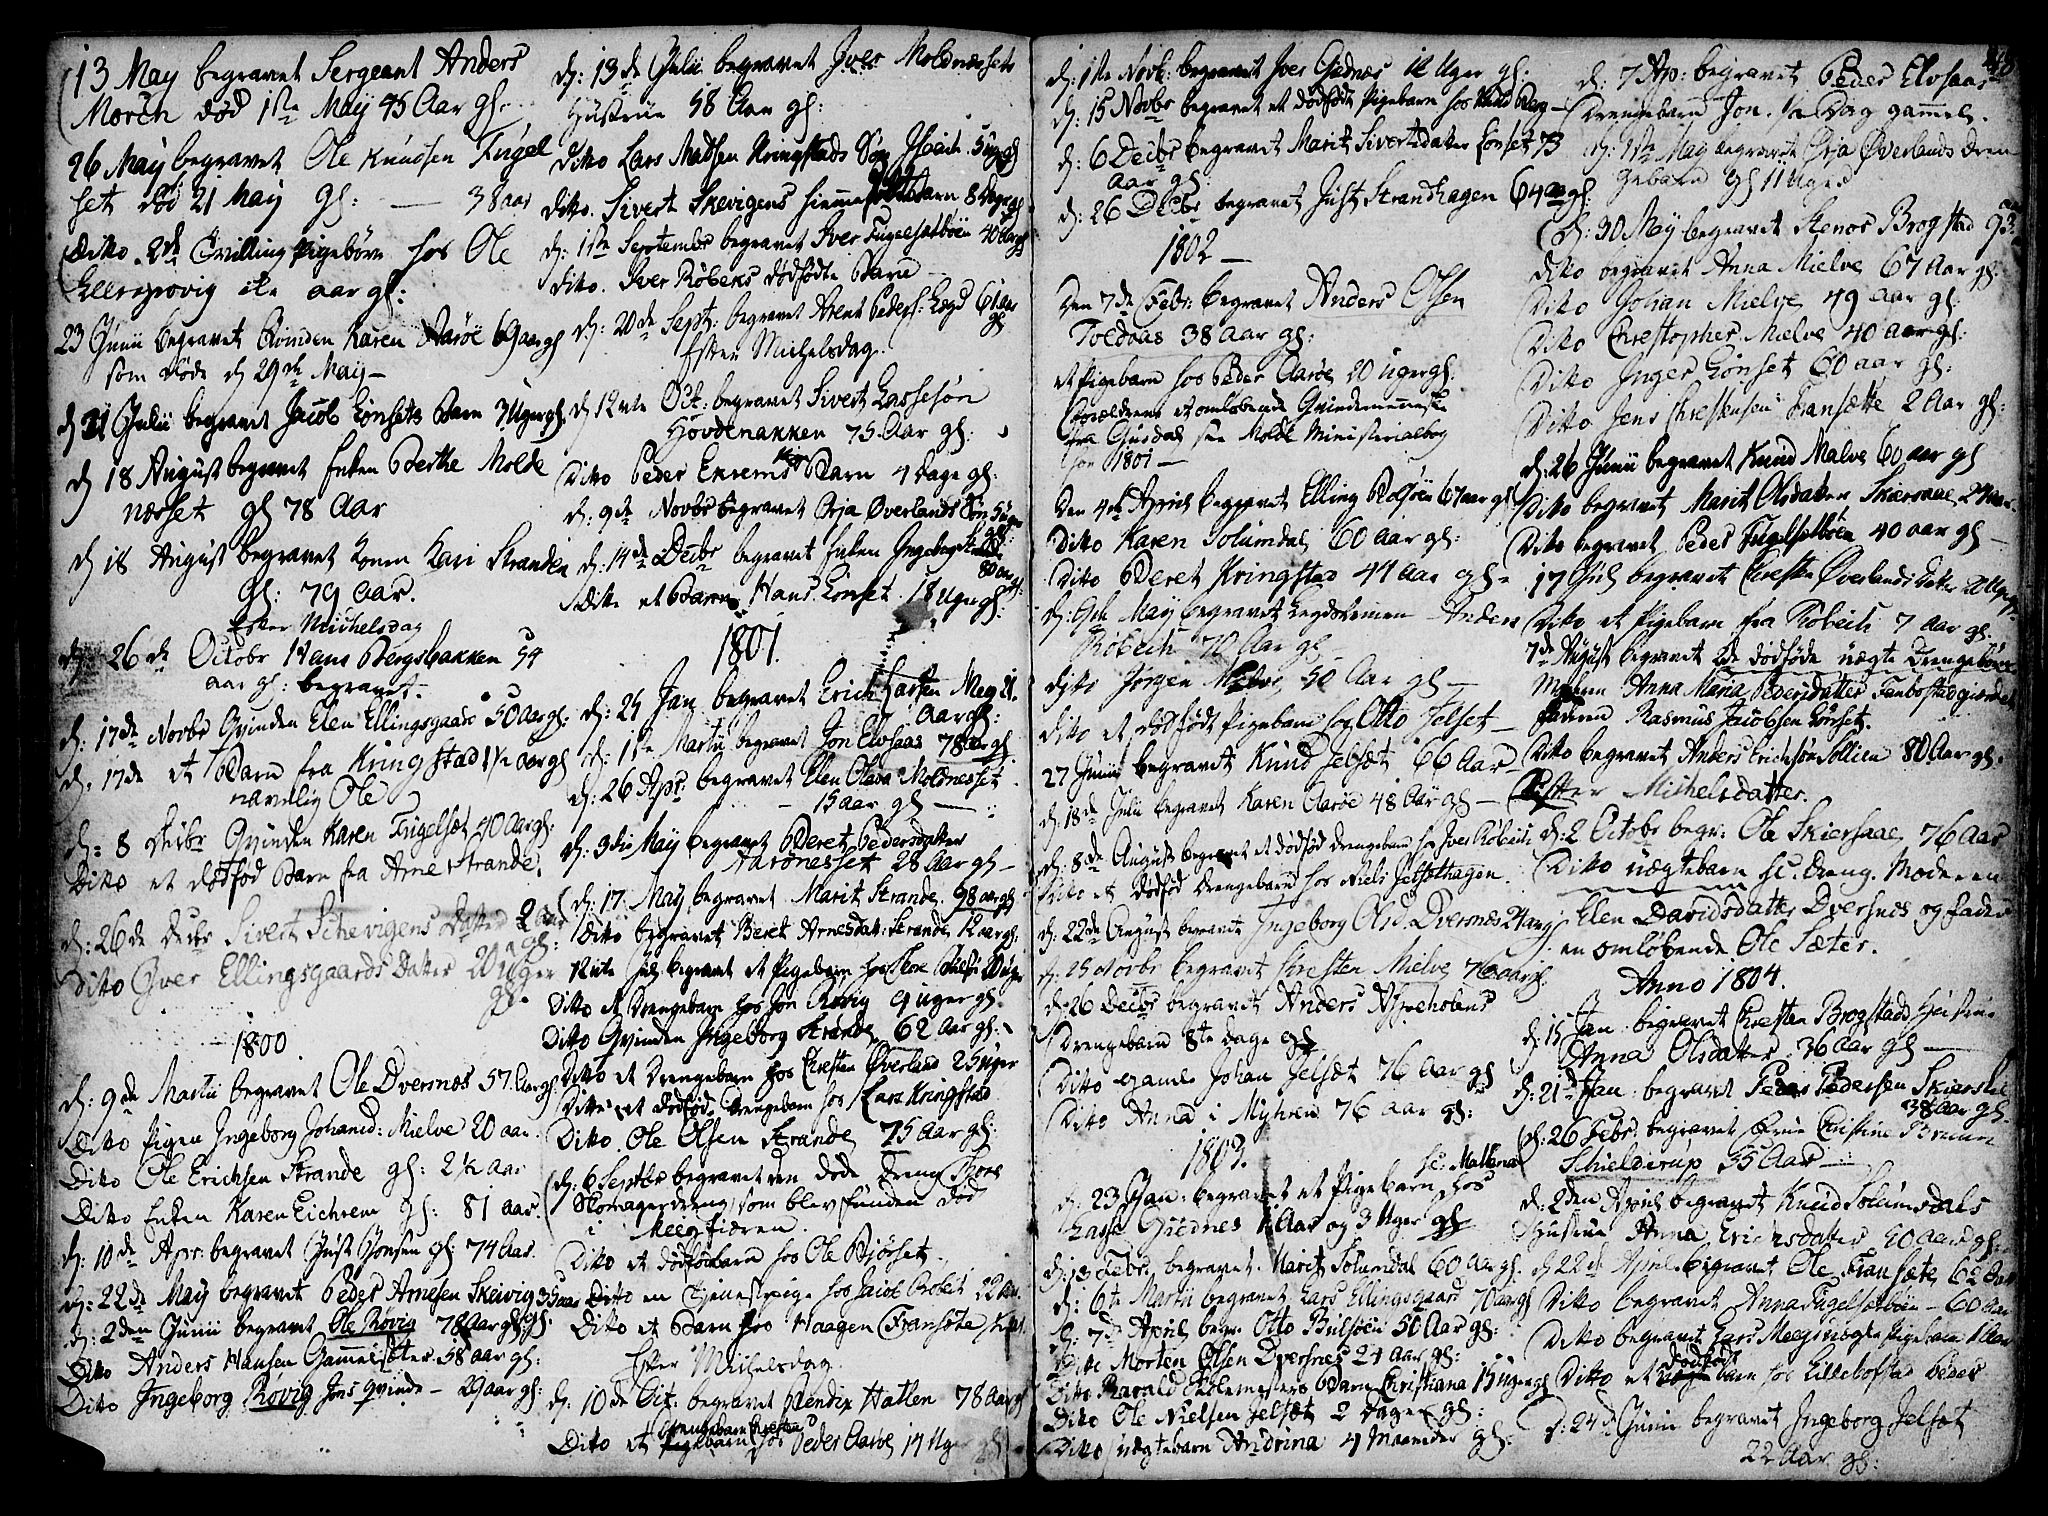 13 May begravet Sergeant Anders
Morch død 1ste May 45 Aar gl.
26 May begravet Ole Knudsen Fugel
set død 21 May gl: — 38 aar
Ditto 2de Tvilling Pigebørn hos Ole
aar gl:
23 Junii begravet Qvinden Karen Aarøe 69 aar gl
som døde d 29de May —
d 21 Julii begravet Jacob Lønsets Barn 3 Uger gl.
d 18 August begravet Enken Berthe Molde
nærset gl 78 Aar
d 18 August begravet Konen Kari Stranden
gl: 79 aar.
Efter Michelsdag
d: 26de Octobr Hans Bergsbakken 54
aar gl: begravet.
d: 17de Novbr Qvinden Elen Ellingsgaard 50 aar gl:
d. 17de et Barn fra Kringstad 1½ aar gl
navnlig Ole
d: 8 Decbr Qvinden Karen Fugelsæt 40 Aar gl:
Ditto et dødfød Barn fra Arne Strande.
d: 26de Decbr Sivert Schevigens Datter 2 aar
gl:
Ditto Iver Ellingsgaards Datter 20 Uger
gl.
1800
d: 9de Martii begravet Ole Dversnæs 57 Aar gl
Ditto Pigen Ingeborg Johansd: Mielve 20 aar
Ditto Ole Erichsen Strande gl: 2½ aar
Ditto Enken Karen Eichrem gl: 81 aar.
d: 10de Apr: begravet Just Jonsen gl: 74 Aar.
d: 22de May begravet Peder Arnesen Skeivig 35 aar
d: 2den Junii begravet Ole Røvig 78 Aar gl.
Ditto Anders Hansen Gammelsæter 58 aar gl:
Ditto Ingeborg Røvig Jons Qvinde — 29 aar gl:
d: 13de Julii begravet Iver Moldnæssets
Hustrue 58 Aar gl:
Ditto Lars Madsen Kringstads Søn
Ditto. Sivert Skevigens Barn 8 Dage gl
d: 1ste Septembr begravet Iver Fugelsetbøen 40 Aar gl
Ditto. Iver Røbeks dødfødte Barn —
d: 20de Sept: begravet Arent Peders: 61 aar
gl
Efter Michelsdag.
d 12te Oct: begravet Sivert Lassesøn
Hovdenakken 75 Aar gl:
Ditto Peder Enrems Barn 4 Dage gl:
d: 9de Novbr begravet Brja Øverlands Søn 5 Uger
gl:
d: 14de Decbr begravet Enken Ingeborg
80 aar gl:
Ditto et Barn Hans Lønset 18 Uger gl:
1801.
d: 25 Jan begravet Erich Larsen Meg 21
Aar gl:
d: 1ste Martii begravet Jon Elvsaas 78 aar gl
d: 26 Apr: begravet Elen Olava Moldnesset
— 15 aar gl —
d: 9de May begravet Beret Pedersdatter
Aarønesset 28 Aar gl —
d: 17 May begravet Marit Strande. 98 aar gl
Ditto begravet Beret Arnesdat: Strande 12 aar gl:
12te Jul: begravet et Pigebarn hos
Ditto et Drengebarn hos Jon Røvig 9 uger gl:
Ditto Qvinden Ingeborg Strande 62 Aar gl:
Ditto et Drengebarn hos Christen Øverland 25 uger
Ditto et dødfød Drengebarn hos Lars Kringstad
Ditto. Ole Olsen Strande 75 Aar gl:
d: 6 Septbr begravet een døde Dreng Thore
Skomagerdreng som blev funden død
i Meegfiæren.
Ditto et dødfødbarn hos Ole Biørset.
Ditto en Tienestepige hos Jacob Røbek 22 Aar.
Ditto et Barn fra Haagen Fransæte
Efter Michelsdag.
d: 10de Oct: begravet Bendix Hatlen 78 Aar gl
Drengebarn Christen
Ditto et Pigebarn hos Peder Aarøe 14 Uger gl
d: 1ste Novb: begravet Iver Gudnæs 12 Uger gl.
d: 15 Novbr begravet et dødfødt Pigebarn hos Knud Berg —
d: 6 Decbr begravet Marit Sivertsdatter Lønset 73
Aar gl:
d: 26 Decbr begravet Just Strandhagen 64 aar gl:
1802 —
Den 7de Febr: begravet Anders Olsen
Toldaas 38 aar gl:
et Pigebarn hos Peder Aarøe 20 Uger gl:
Forældrene et omløbende Qvindemenneske
fra Gusdal see Molde Ministerialbog
for 1801 —
Den 4de April begravet Elling Bolsøen 67 aar gl
Ditto Karen Solumdal 60 aar gl:
Ditto Beret Kringstad 44 Aar gl.
d: 9de May begravet Legdslemen Anders
Røbech 70 Aar gl —
Ditto Jørgen Mælve 50 Aar gl —
Ditto et dødfødt Pigebarn hos Otto Jelset —
27 Junii begravet Knud Jelsæt 66 Aar —
d: 18de Julii begravet Karen Aarøe 48 Aar gl —
d: 8de August begravet et dødfød Drengebarn hos Iver Røbech
Ditto et dødfød Drengebarn hos Niels Jelsethagen.
d: 22de August begravet Ingeborg Olsd. Dversnæs 24 aar gl
d: 25 Novbr begravet Christen Mielve 76 aar gl.
d: 26 Decbr begravet Anders Aspeholens
Drengebarn 8te dage gl
Ditto gamle Johan Jelsæt 76 Aar gl
Ditto Anna i Myhren 76 aar gl:
1803.
sc: Mallena
d: 23 Jan: begravet et Pigebarn hos
Lasse Gudnes 1 Aar og 3 Uger gl
d: 13 Febr: begravet. Marit Solumdal 60 aar gl:
d: 6te Martii begravet Lars Ellingsgaard 70 aar gl
d: 7de April begr: Otto Bulsøen 50 Aar gl:
Ditto Morten Olsen Dversnes 24 aar gl:
Ditto Harald Skolemesters Barn Christiana 15 uger gl
Ditto Ole Nielsen Jelsæt 2 Dage gl:
Ditto uægtebarn Andrina 4 Maaneder gl:
48
d: 7 Ap: begravet Peder Elvsaas
Drengebarn Jon. ½ Dag gammel.
d: 1ste May begravet Brja Øverlands Dren
gebarn gl 11 Uger
d: 30 May begravet Stenor Brogstad 93
Ditto begravet Anna Mielve 67 Aar gl:
Ditto Johan Mielve 49 aar gl.
Ditto Christopher Mælve 40 aar gl:
Ditto Inger Lønset 60 aar gl:
Ditto Jens Christensen Fransætte 2 Aar gl:
d: 26 Junii begravet Knud Mælve 60 aar gl
Ditto begravet Marit Olsdatter Skiersaae 24 aar
Ditto begravet Peder Fugelsetbøen 40 aar gl —
17 Jul: begravet Christen Øverlands Datter 20 Uger gl.
Ditto et Pigebarn fra Røbech 7 aar gl.
7de August begravet 2de dødføde uægte Drengebørn
Moderen Anna Maria Pedersdatter Fanbostadgierde
faderen Rasmus Jacobsen Lønset.
Ditto begravet Anders Erichsøn Sollien 80 Aar gl.
Efter Michelsdatter.
d: 2 Octobr begr: Ole Skiersaae 76 Aar
Ditto uægtebarn sc: Dreng. Moderen
Elen Davidsdatter Dversnes og fader
en omløbende Ole Sæter.
Anno 1804.
d: 15 Jan: begravet Christen Brogstads Hustrue
Anna Olsdatter 36 aar gl —
d: 21de Jan: begravet Peder Pedersen Skiersaae
38 aar gl
d: 26 Febr. begravet Frue Christine Bruun
Schielderup 55 Aar —
d: 2den April begravet Knud Solumsdals
Hustrue Anna Erichsdatter 60 Aar gl:
d 22de April begravet Ole Fransæte 62 Aar
Ditto begravet Anna Fugelsetbøen — 60 Aar
Ditto begravet Lars Meegs uægte Pigebarn 1 Aar
dødfødt
Ditto et barn hos Lillebostad Peder
d: 24de Junii begravet Ingeborg Jelset
22 Aar gl: